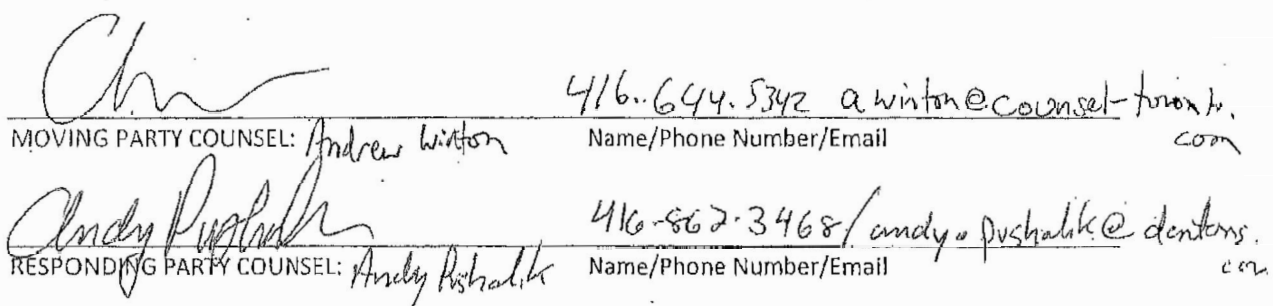 416.644.5342 awinton@counsel-toronto.
MOVING PARTY COUNSEL: Andrew Winton Name/Phone Number/Email com
Andy Pushalik 416-862-3468/ andy.pushalik@dentons.
RESPONDING PARTY COUNSEL: Andy Pushalik Name/Phone Number/Email com